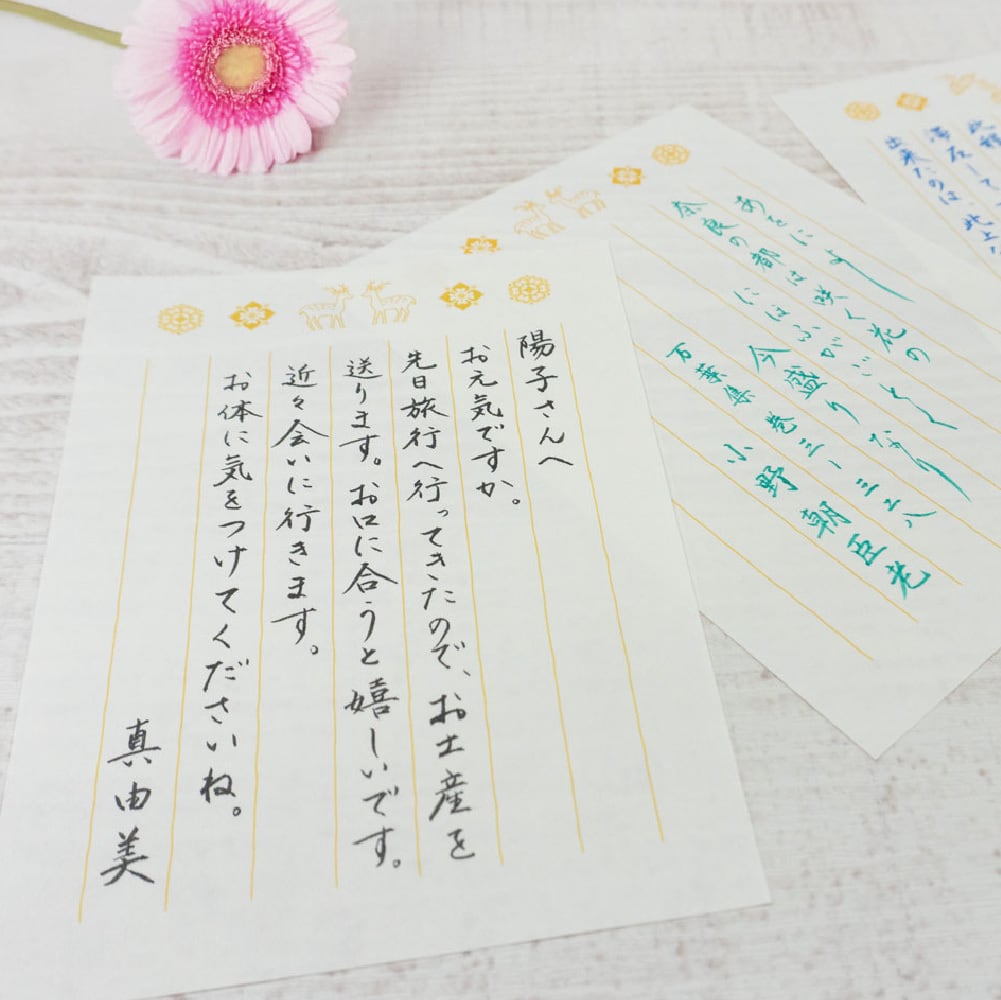 陽子さんへ
お元気ですか。
先日旅行へ行ってきたので、お土産を
送ります。お口に合うと嬉しいです。
近々会いに行きます。
お体に気をつけてくださいね。
真由美
あをによし
奈良の都は咲く花の
にほふがごとく
今盛りなり
万葉集 巻三・三二八
小野朝臣老
滞在して
出来たのは、北上